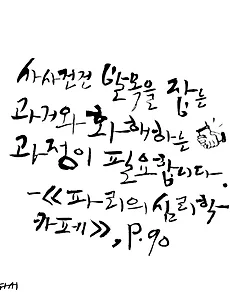 사사건건 발목을 잡는
과거와 화해하는
과정이 필요합니다.
-《파리의 심리학
카페》, p.90